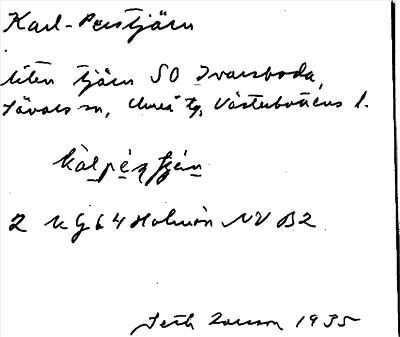 Karl-Perstjärn
liten tjärn SO Ivarsboda,
Sävars sn, Umeå tg, Västerbottens l.
kàlpèṣtjæ̀n
2 k G 64 Holmön NV B2
Seth Larsson 1935